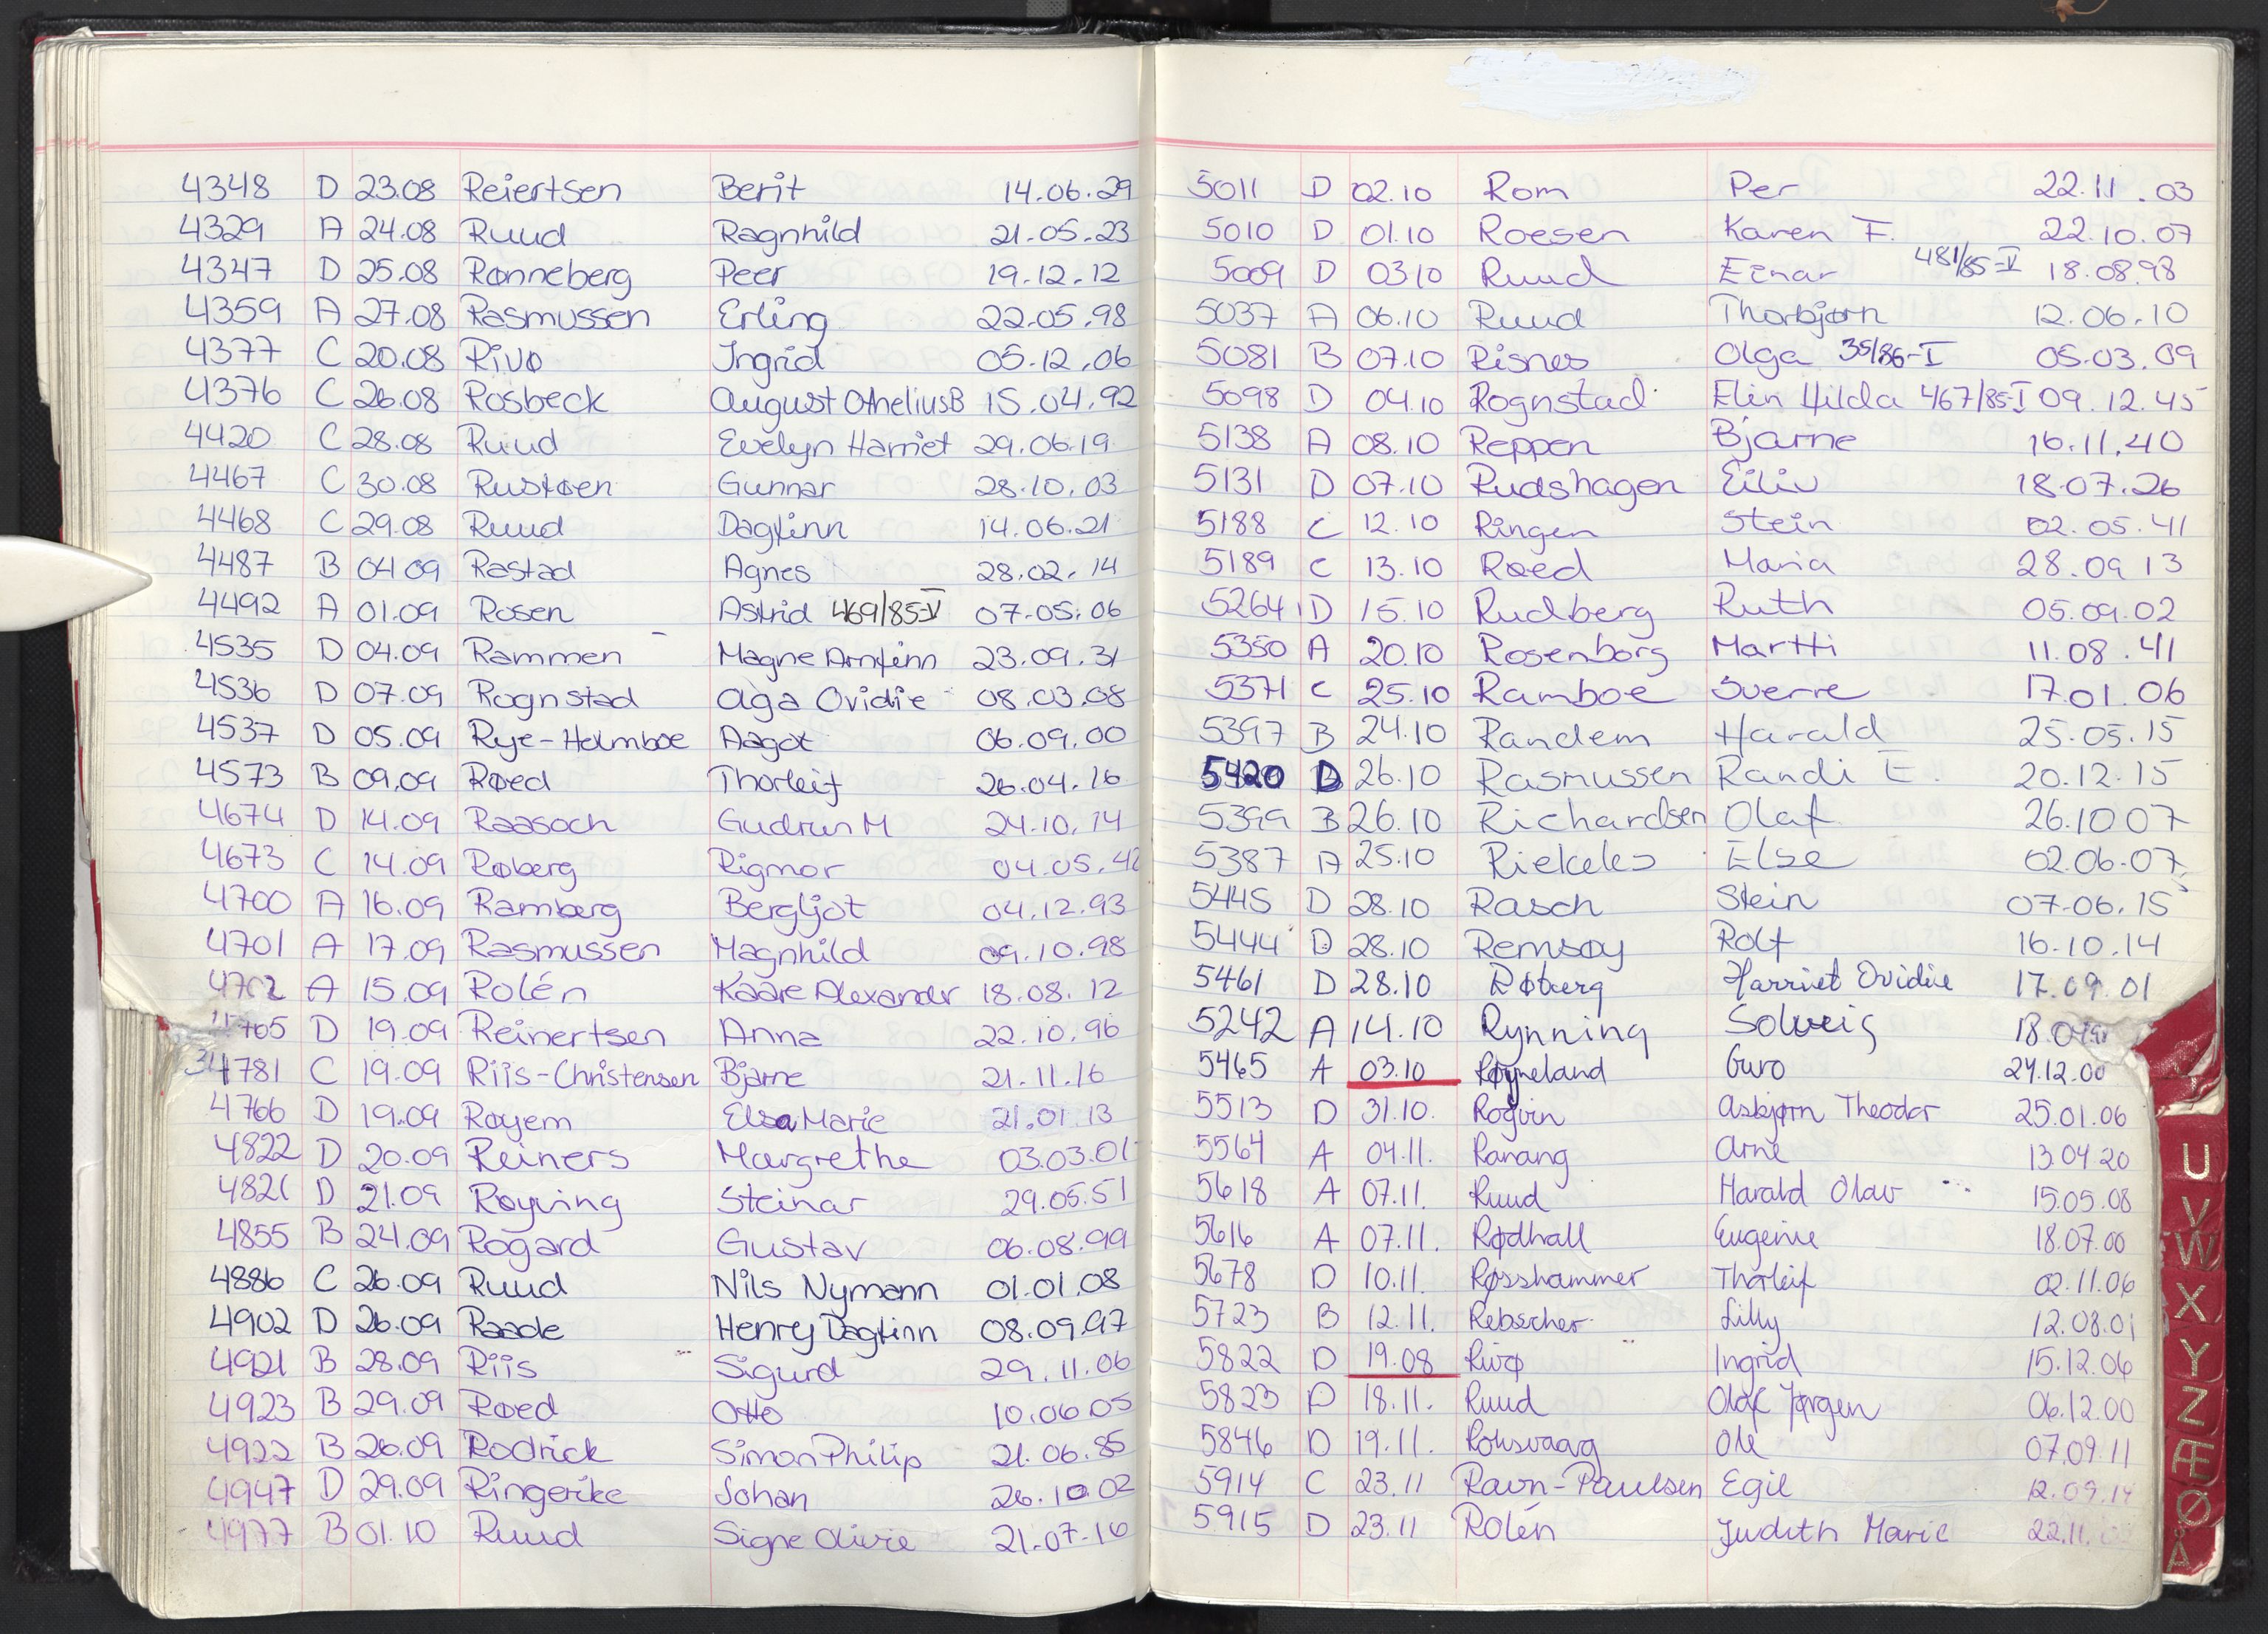 4348 D 23.08 Reiertsen Berit 14.06.29
4329 A 24.08 Ruud Ragnhild 21.05.23
4347 D 25.08 Rønneberg Peer 19.12.12
4359 A 27.08 Rasmussen Erling 22.05.98
4377 C 20.08 Rivø Ingrid 05.12.06
4376 C 26.08 Rosbeck August Othelius B 15.04.92
4420 C 28.08 Ruud Evelyn Harriet 29.06.19
4467 C 30.08 Rustøen Gunnar 28.10.03
4468 C 29.08 Ruud Dagfinn 14.06.21
4487 B 04.09 Rastad Agnes 28.02.14
4492 A 01.09 Rosen Astrid 469/85-V 07.05.06
4535 D 04.09 Rammen Magne Arnfinn 23.09.31
4536 D 07.09 Rognstad Aga Ovidie 08.03.08
4537 D 05.09 Rye-Holmboe Aagot 06.09.00
4573 B 09.09 Røed Thorleif 26.04.16
4674 D 14.09 Raasoch Gudrun M 24.10.14
4673 C 14.09 Røberg Rigmor 04.05.42
4700 A 16.09 Ramberg Bergljot 04.12.93
4701 A 17.09 Rasmussen Magnhild 09.10.98
4702 A 15.09 Rolén Kaare Alexander 18.08.12
4765 D 19.09 Reinertsen Anna 22.10.96
4781 C 19.09 Riis-Christensen Bjarne 21.11.16
4766 D 19.09 Røyem Elsa Marie 21.01.13
4822 D 20.09 Reiners Margrethe 03.03.01
4821 D 21.09 Røyving Steinar 29.05.51
4855 B 24.09 Rogard Gustav 06.08.99
4886 C 26.09 Ruud Nils Nymann 01.01.08
4902 D 26.09 Raade Henry Dagfinn 08.09.97
4921 B 28.09 Riis Sigurd 29.11.06
4923 B 29.09 Røed Otto 10.06.05
4922 B 26.09 Rodrick Simon Philip 21.06.85
4947 D 29.09 Ringerike Johan 26.10.02
4977 B 01.10 Ruud Signe Olivie 21.07.16
5011 D 02.10 Rom Per 22.11.03
5010 D 01.10 Roesen Karen F. 22.10.07
5009 D 03 10 Ruud Einar 481/85-V 18.08.98
5037 A 06.10 Ruud Thorbjørn 12.06.10
5081 B 07.10 Risnes Olga 35/86-I 05.03.09
5098 D 04.10 Rognstad Elin Hilda 467/85-I 09.12.45
5138 A 08.10 Reppen Bjarne 16.11.40
5131 D 07.10 Rudshagen Eiliv 18.07.26
5188 C 12.10 Ringen Stein 02.05.41
5189 C 13.10 Røed Maria 28.09 13
5264 D 15.10 Rudberg Ruth 05.09.02
5350 A 20.10 Rosenborg Martti 11.08.41
5371 C 25.10 Ramboe Sverre 17.01.06
5397 B 24.10 Randem Harald 25.05.15
5420 D 26.10 Rasmussen Randi E. 20.12.15
5399 B 26.10 Richardsen Olaf 26.10 07
5387 A 25.10 Riekeles Else 02.06.07
5445 D 28.10 Rasch Stein 07.06.15
5444 D 28.10 Remsøy Rolf 16.10.14
5461 D 28.10 Røberg Harriet Ovidie 17.09.01
5242 A 14.10 Rynning Solveig 18.
5465 A 03.10 Røyneland Guro 24.12.00
5513 D 31.10. Rogvin Asbjørn Theodor 25.01.06
5564 A 04.11. Ranang Arne 13.04 20
5618 A 07.11. Ruud Harald Olav 15.05.08
5616 A 07.11. Rødhall Eugenie 18.07.00
5678 D 10.11. Røsshammer Thorleif 02.11.06
5723 B 12.11. Rebscher Lilly 12.08.01
5822 D 19.08 Rivø Ingrid 15.12.06
5823 D 18.11. Ruud Olaf Jørgen 06.12.00
5846 D 19.11. Roksvaag Ole 07.09.11
5914 C 23.11 Ravn-Paulsen Egil 12.09.14
5915 D 23.11 Rolén Judith Marie 22.11.
U
V
W
X
Y
Z
Æ
Ø
Å